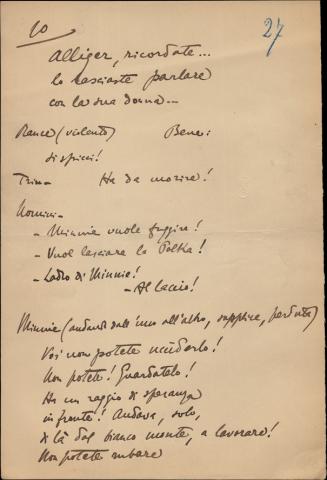 10
27
Alliger, ricordate...
lo lasciaste parlare
con la sua donna...
Rance (violento) Bene:
si spicci!
Trin - Ha da morire!
Uomini -
- Minnie vuole fuggire!
- Vuol lasciare la Polka!
- Ladro di Minnie!
- Al laccio!
Minnie (andando dall'uno all'altro, supplice, perduta)
Voi non potete ucciderlo!
Non potete! Guardatelo!
Ha un raggio di speranza
in fronte! Andava, solo,
di là dal bianco monte, a lavorare!
Non potete rubare